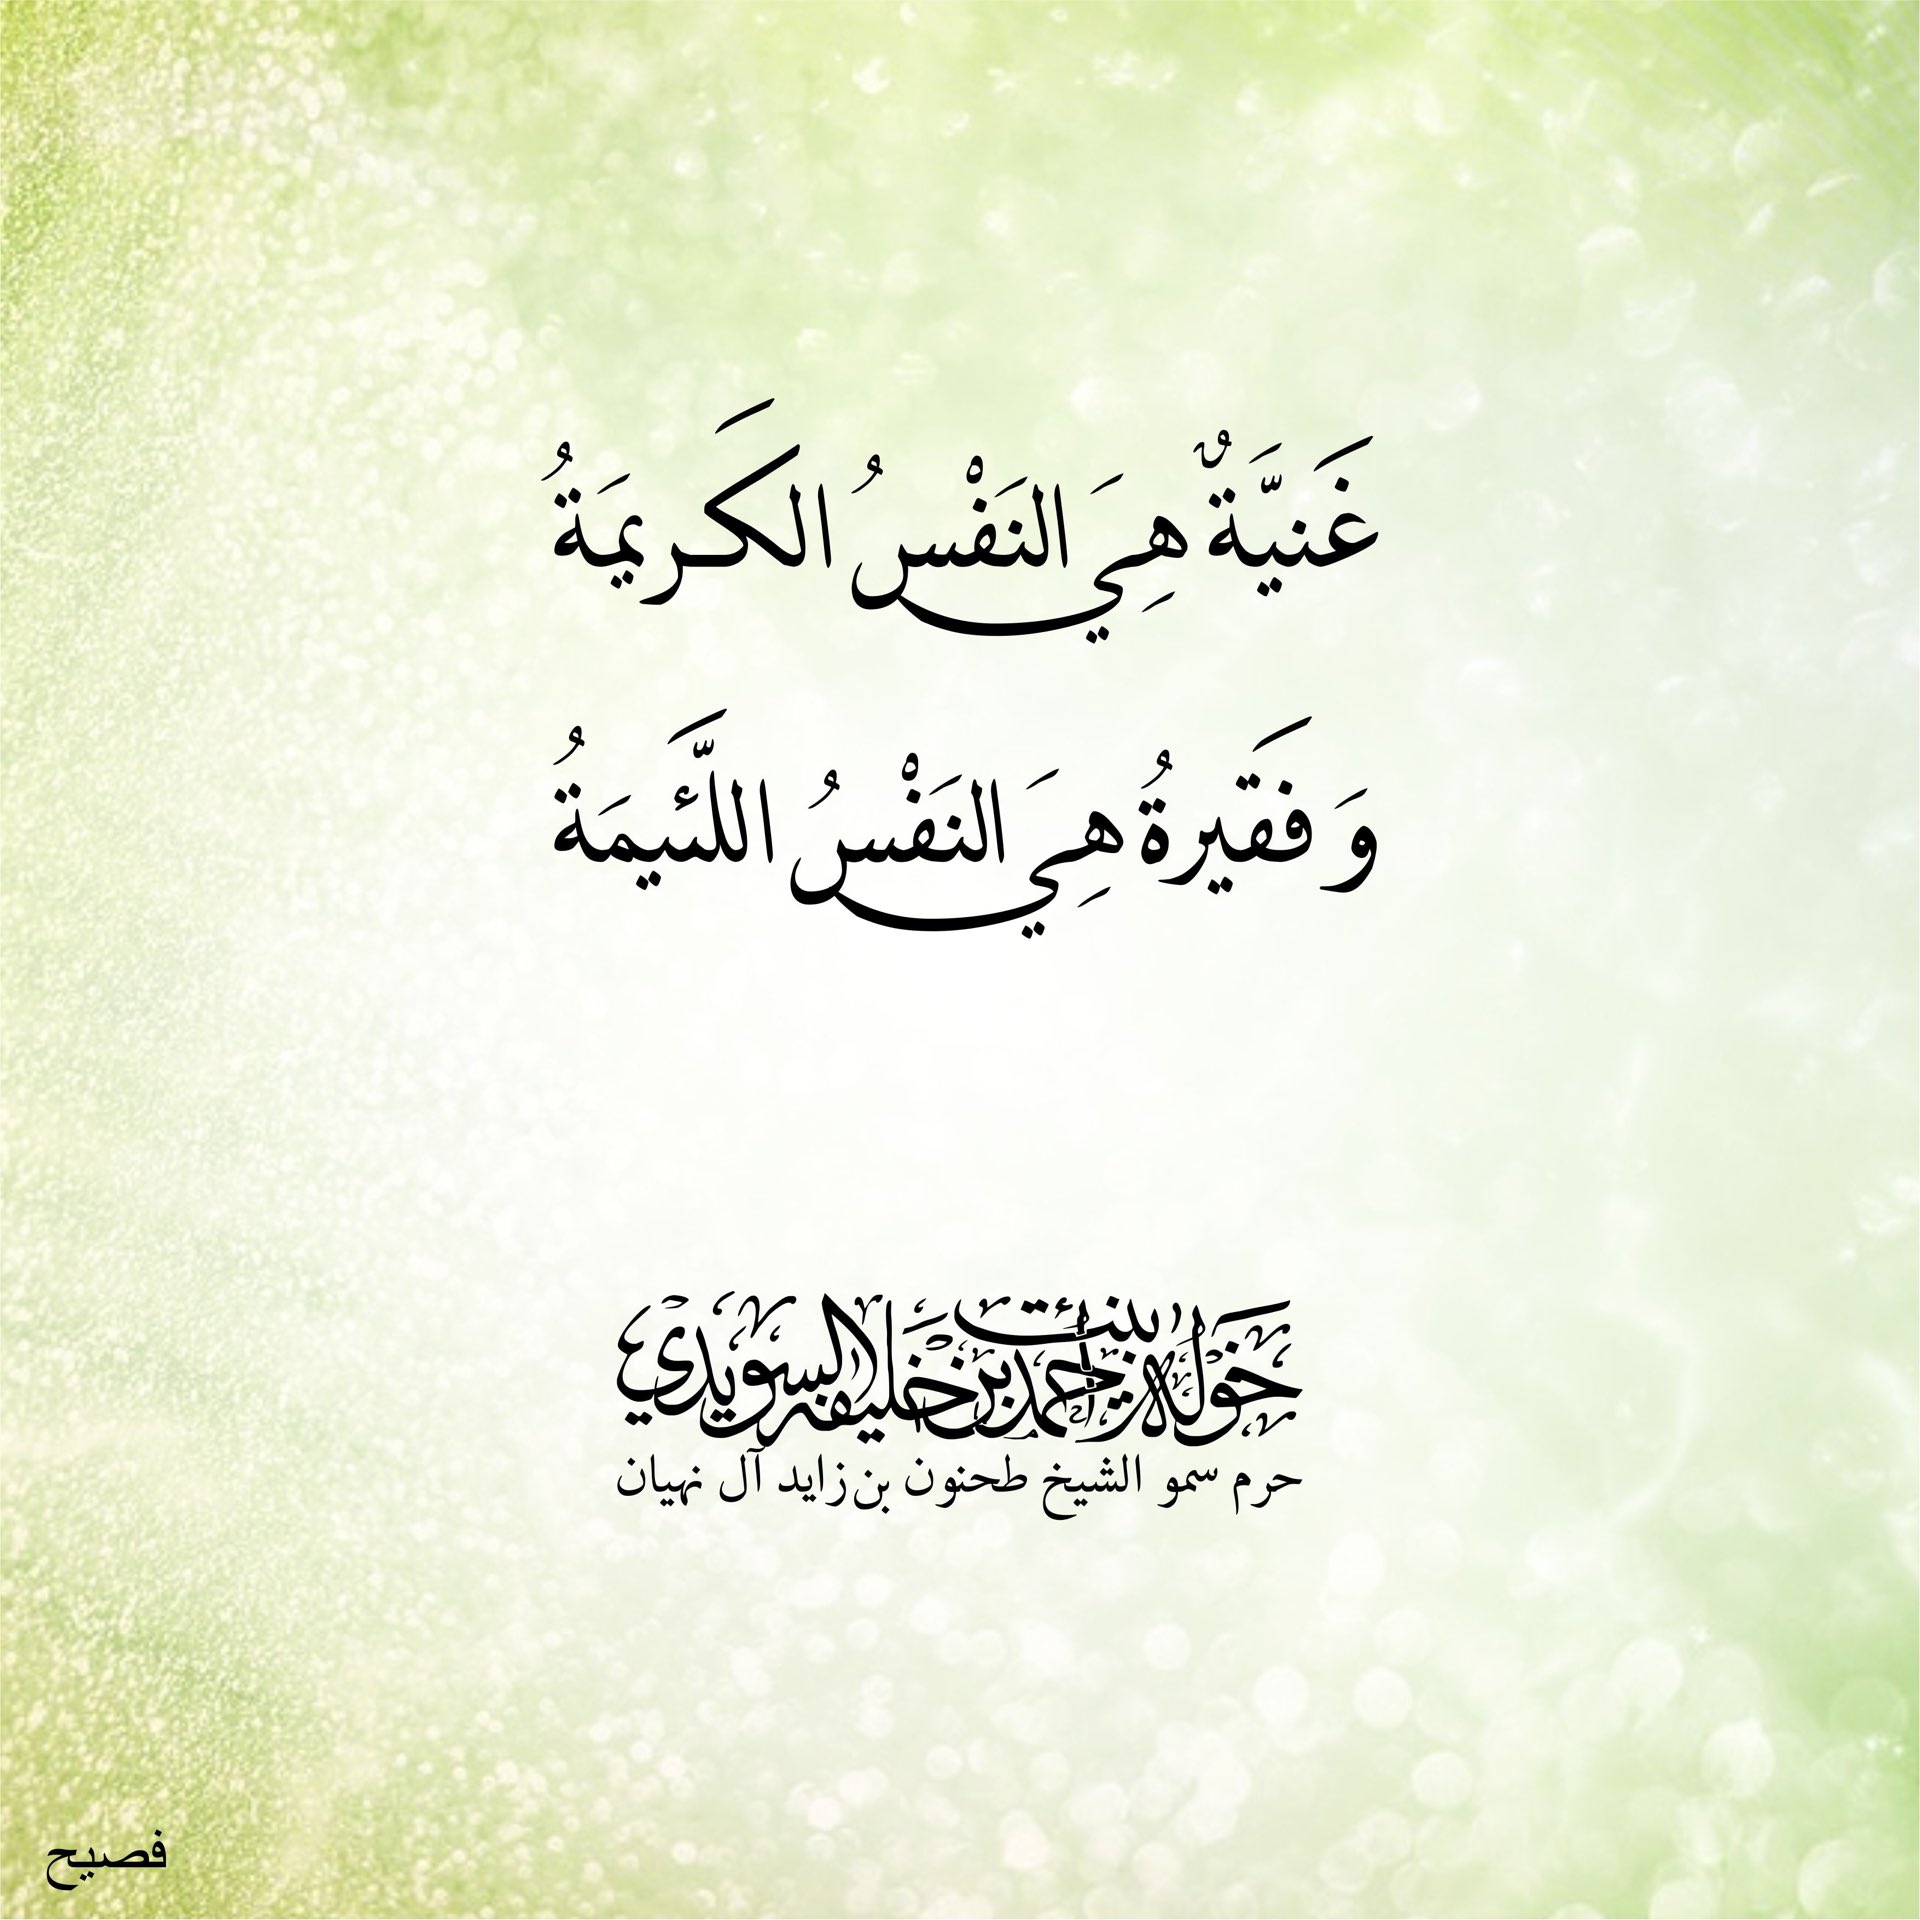 غَنيَّةٌ هِيَ النَفْسُ الكَريمَةُ
وَ فَقَيرةُ هِيَ النَفْسُ اللَّئيمَةُ
خولة بنت أحمد بن خليفة السويدي
حرم سمو الشيخ طحنون بن زايد آل نهيان
فصيح